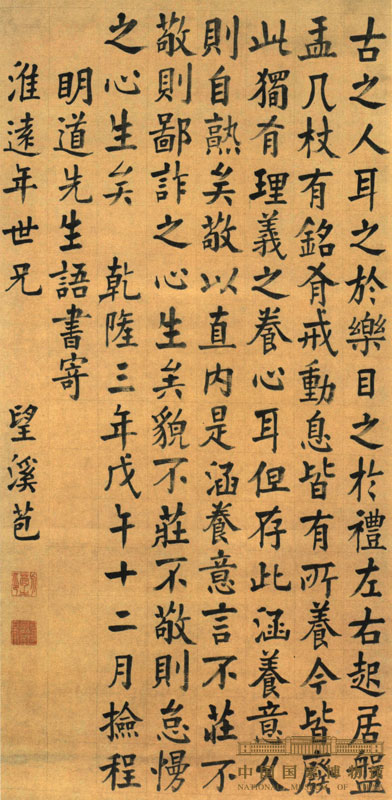 古之人耳之於樂目之於禮左右起居盤
盂几杖有銘有戒動息皆有所養今皆廢
此獨有理義之養心耳但存此涵養意久
則自熟矣敬以直内是涵養意言不莊不
敬則鄙詐之心生矣貌不莊不敬則怠慢
之心生矣 乾隆三年戊午十二月撿程
明道先生語書寄
淮遠年世兄 望溪苞
中國國家博物館
NATIONAL MUSEUM OF